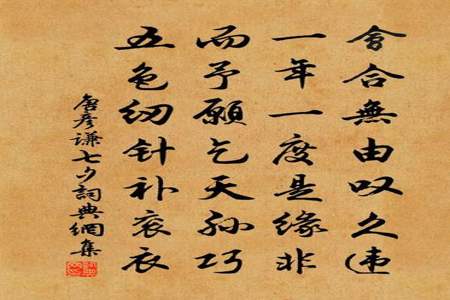 會合無由叹久違
一年一度是缘非
而予願乞天孫巧
五色纫针补衮衣
唐彦謙七夕詞典網集